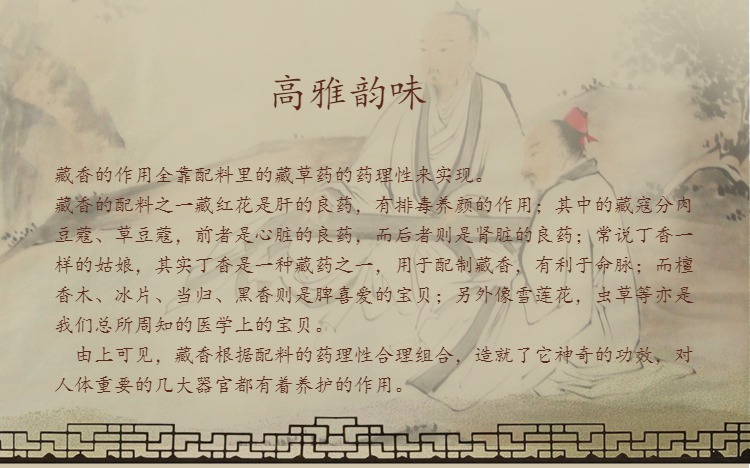 高雅韵味
藏香的作用全靠配料里的藏草药的药理性来实现。
藏香的配料之一藏红花是肝的良药，有排毒养颜的作用；其中的藏寇分肉
豆蔻、草豆蔻，前者是心脏的良药，而后者则是肾脏的良药；常说丁香一
样的姑娘，其实丁香是一种藏药之一，用于配制藏香，有利于命脉；而檀
香木、冰片、当归、黑香则是脾喜爱的宝贝；另外像雪莲花，虫草等亦是
我们总所周知的医学上的宝贝。
由上可见，藏香根据配料的药理性合理组合，造就了它神奇的功效，对
人体重要的几大器官都有着养护的作用。